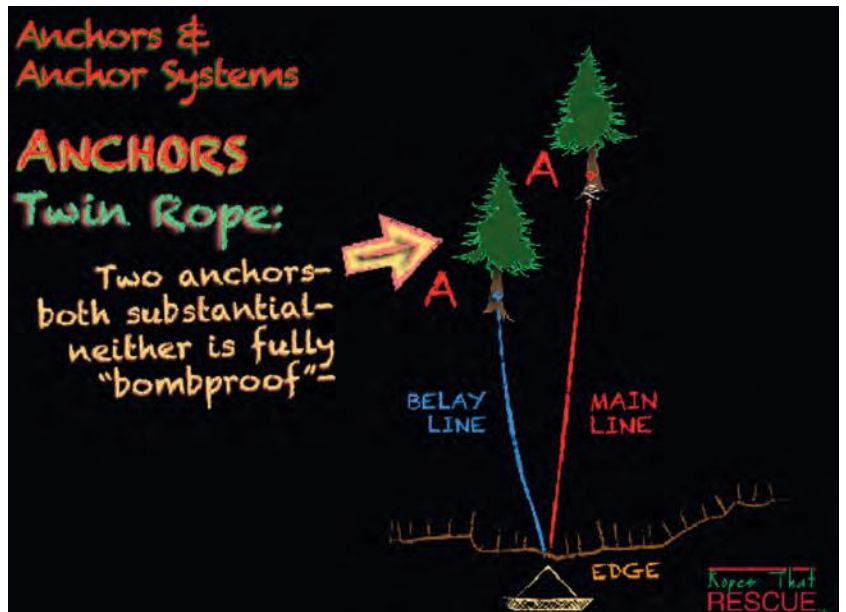 Anchors &
Anchor Systems
ANCHORS
Twin Rope:
Two anchors-
both substantial-
neither is fully
"bombproof"-
A
A
BELAY
LINE
MAIN
LINE
EDGE
Ropes That
RESCUE